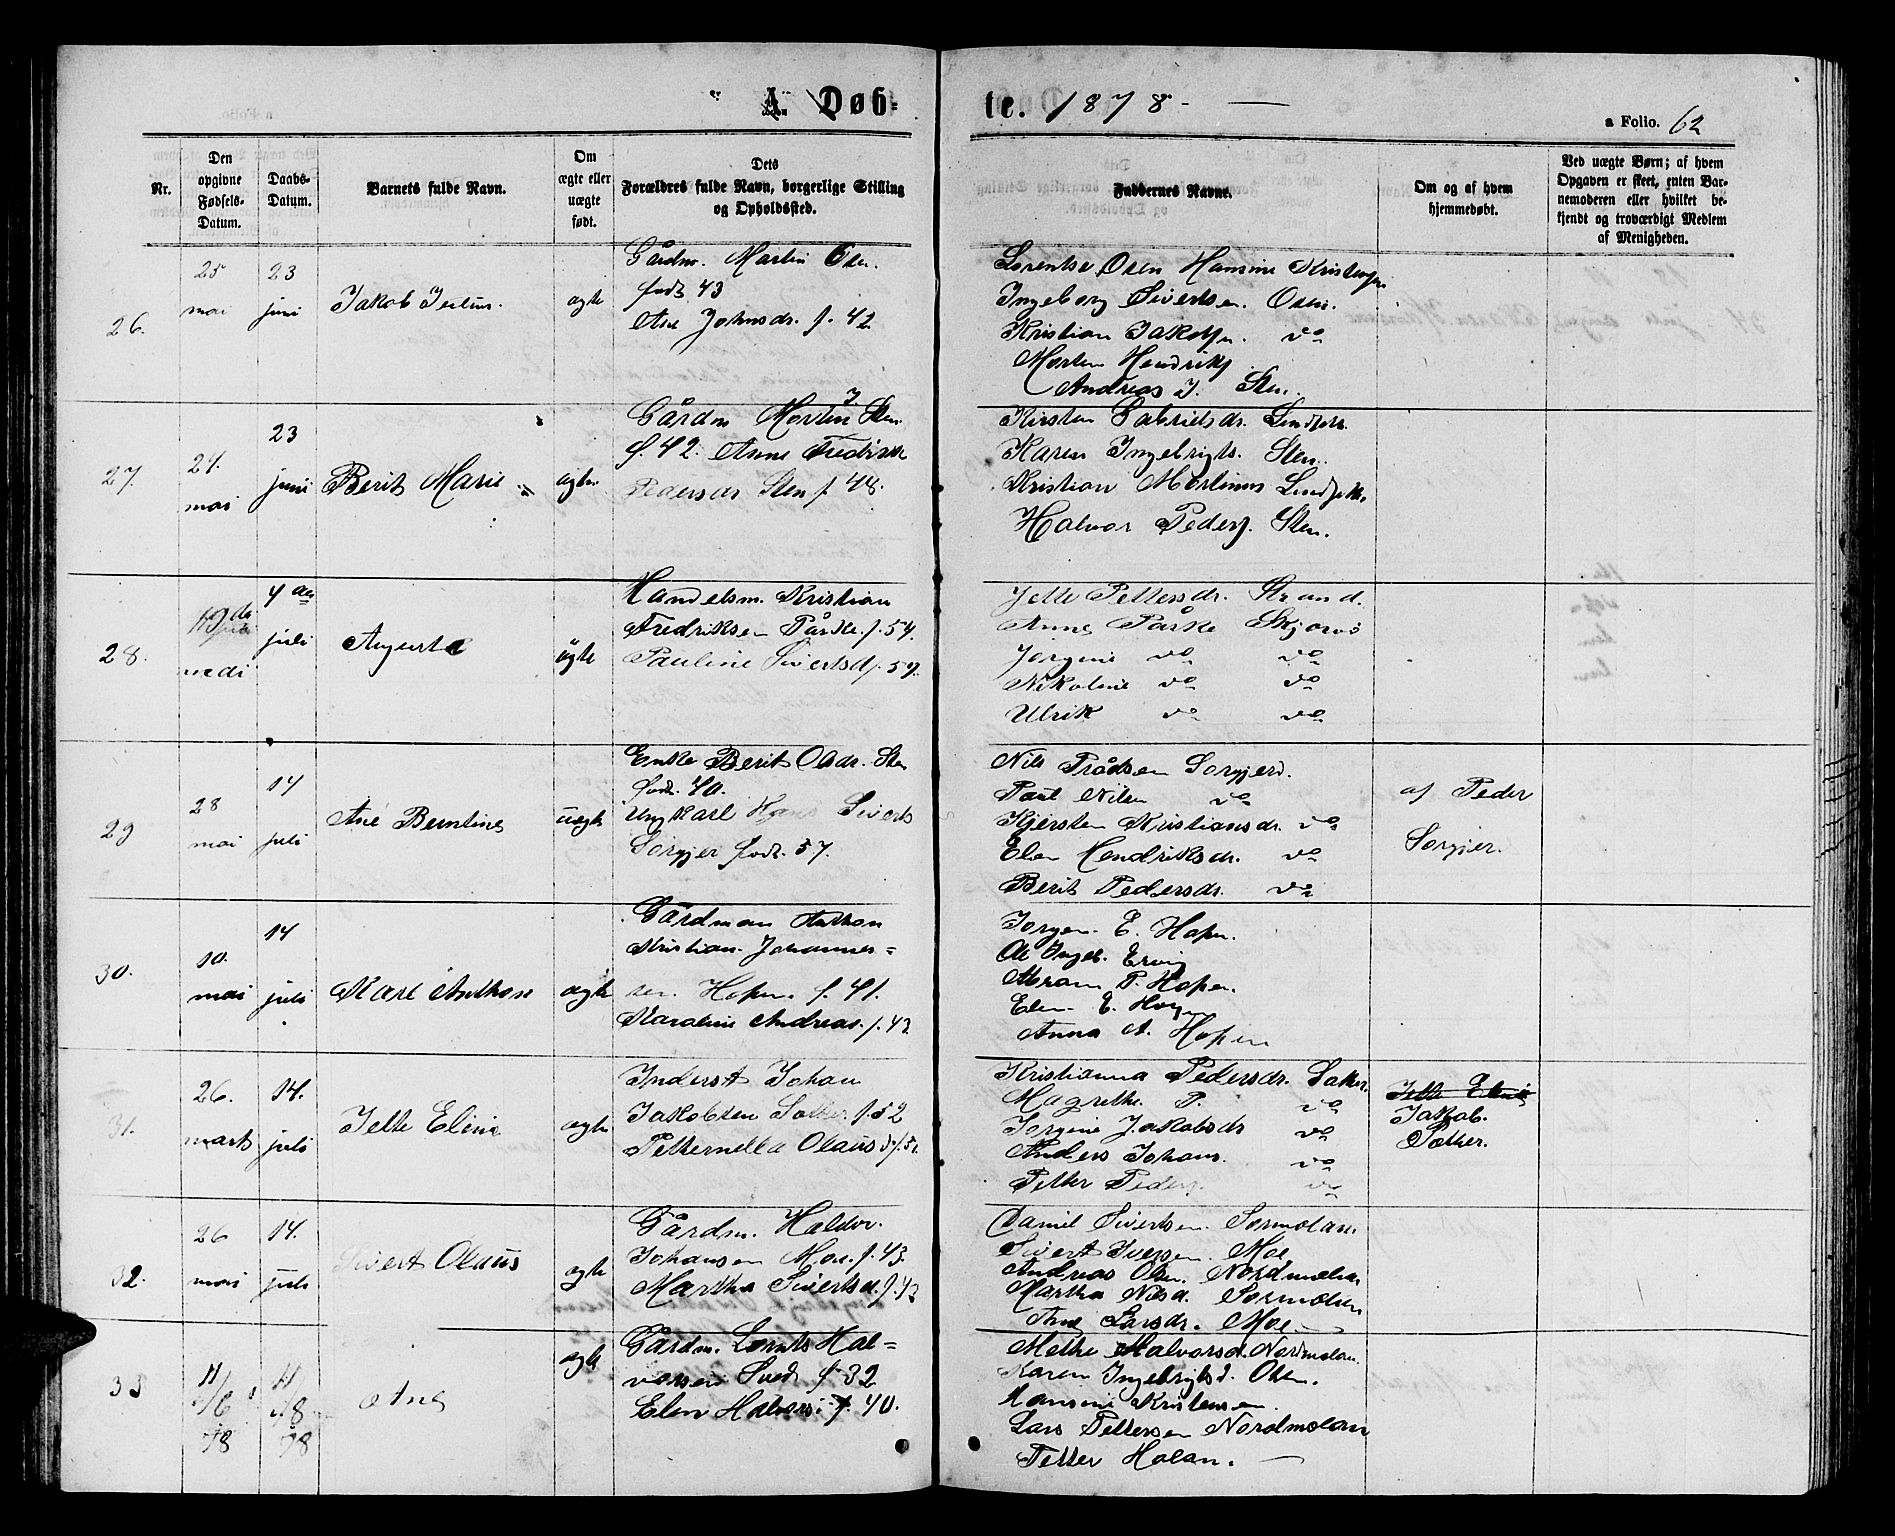 A. Døb-
te. 1878 -
a Folio. 62
Nr.
Den opgivne Fødsels-Datum.
Daabs-Datum.
Barnets fulde Navn.
Om ægte eller uægte født.
Dets Forældres fulde Navn, borgerlige Stilling og Opholdssted.
Faddernes Navne.
Om og af hvem hjemmedøbt.
Ved uægte Børn; af hvem Opgaven er skeet, enten Barnemoderen eller hvilket bekjendt og troværdigt Medlem af Menigheden.
26.
25 mai
23 juni
Jakob
ægte
Gårdm. Martin Osen.
født 43
Ane Johnsdr. f. 42
Lorentse Osen Hansine
Ingeborg Sivertsen. Osen.
Kristian Jakobsn. do
Morten Hendriks
Andreas J. Sten.
27.
24. mai
23 juni
Berit Marie
ægte
Gårdm Morten J. Sten
f. 42. Anne Fredrikke
Pedersdr Sten f 48.
Kirsten Gabrielsdr.
Karen Ingebrigts. Sten.
Kristian Martinus
Halvor Peders. Sten.
28.
4 juli
Augusta
ægte
Handelsm. Kristian
Fredriksen Påske. f. 54.
Pauline Sivertsd f. 57.
Jette Pettersdr. Strand.
Anne Påske Skjarvø
Jørgine do do
Nikoline do do
Ulrik do do
29
28 mai
14 juli
Ane Berntine
uægte
Enke Berit Olsdr. Sten
født. 40.
Ungkarl Hans Siverts
Sorgjer født. 57.
Nils Trådsen Sorgjerd.
Paul Nilsen do
Kjersten Kristiansdr. do
Elen Hendriksdr. do
Berit Pedersdr. do
af Peder
Sorgjer.
30.
10. mai
14 juli
Karl Anthon
ægte
Gårdman Anthon
Kristian Johannes=
sen. Hopen. f. 41.
Karoline Andreas. f. 42
Jørgen. E. Hopen.
Ole Ingeb. Ervig
Abram P. Hopen.
Elen E.
Anna A. Hopen
31.
26. marts
14. juli
Jette Eline
ægte
Inderst Johan
Jakobsen Sæther f. 52
Petternella Olausd f. 52.
Kristianna Pedersdr. Sæther.
Magrethe P. do
Jørgine Jakobsdr do
Anders Johans. do
Petter Peders. do
Jette Eline
Jakob.
Sæther.
32.
26 mai
14. juli
Sivert Olaus
ægte
Gårdm. Haldor
Johansen Moe. f. 43.
Martha Sivertsd. f. 43
Daniel Sivertsen. Sørmolan.
Sivert Iversen. Moe
Andreas Olsen. Nordmolan
Martha Nilsd. Sørmolan
Ane Larsdr. Moe
33
11/6 78
11/8 78
Ane
ægte
Gårdm. Lornts Hal=
vorsen Sved f 32
Elen Halvors f. 40.
Methe Halvorsd. Nordmolan.
Karen Ingebrigtsd. Olsen.
Hansine Kristensen.
Lars Pettersen Nordmolan
Petter Holan.